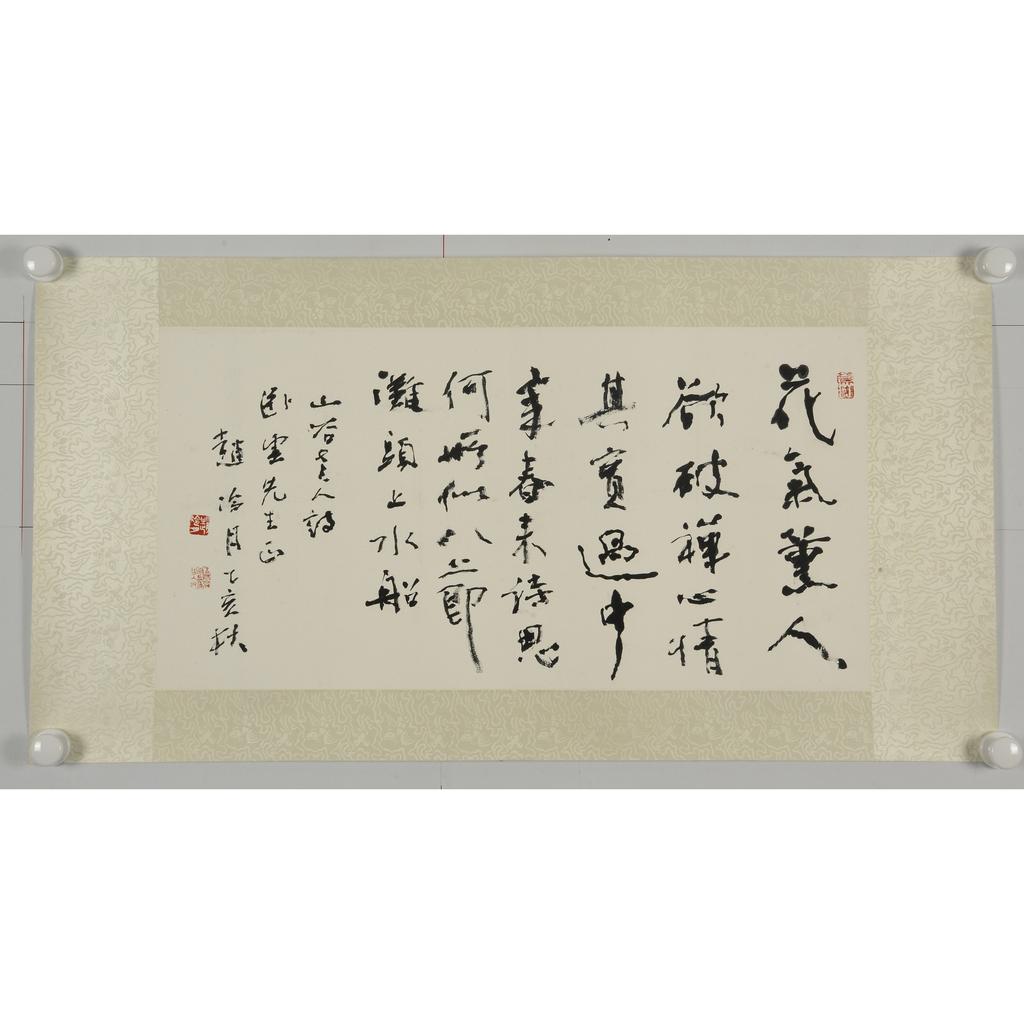 花氣薰人
欲破禪心情
其實過中
年春來詩思
何所似八節
灘頭上水船
山谷老人詩
臥雲先生正
趙冷月乙亥秋